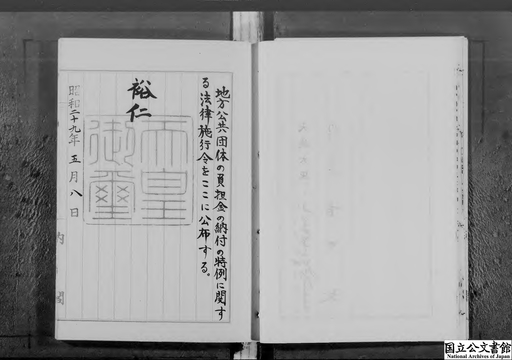 地方公共団体の負担金の納付の特例に関す
る法律施行令をここに公布する。
裕仁
天皇
御璽
昭和二十九年五月八日
内閣
国立公文書館
National Archives of Japan